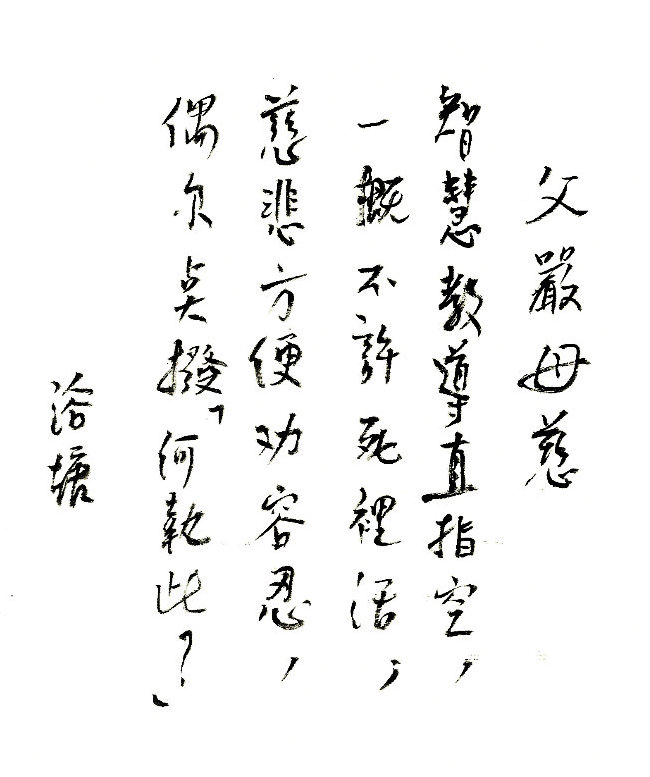 父嚴母慈
智慧教導直指空，
一概不許死裡活，
慈悲方便劝容忍，
偶尔点撥「何執此？」
浴塘